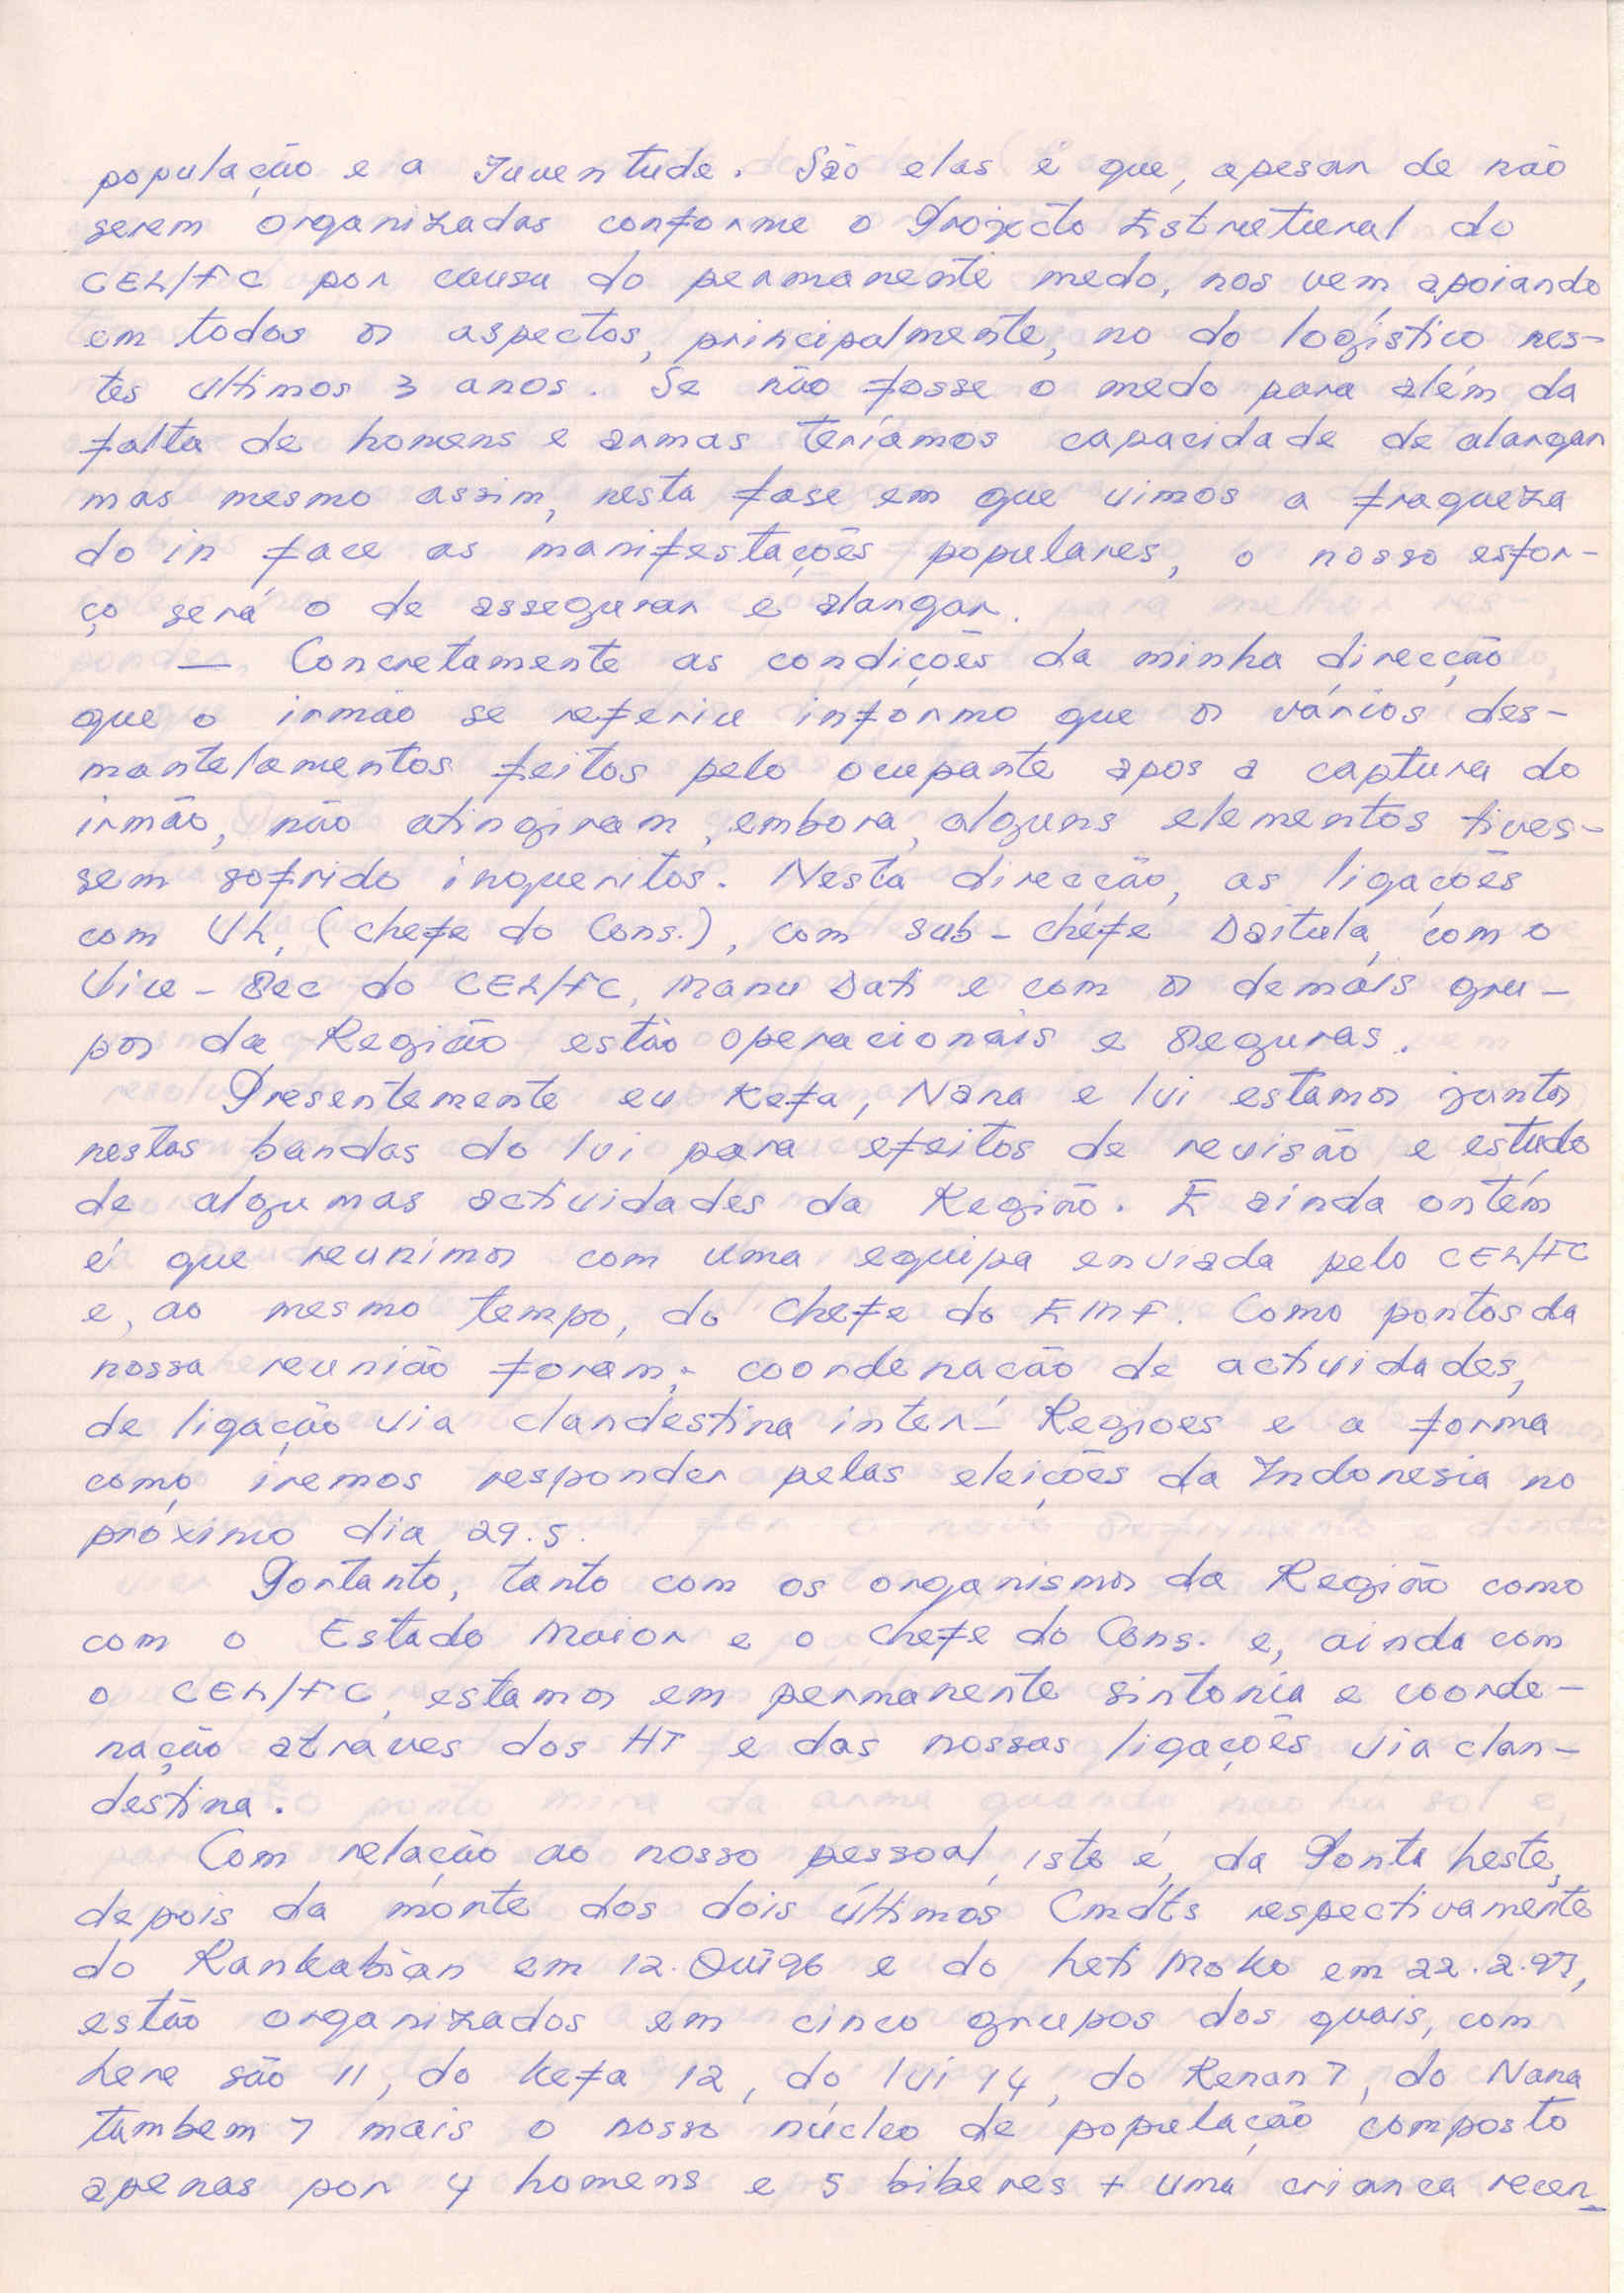 população e a Juventude. São elas é que, apesar de não
serem organizadas conforme o Projecto Estrutural do
CEL/FC por causa do permanente medo, nos vem apoiando
em todos os aspectos, principalmente, no do logístico nes-
tes ultimos 3 anos. Se não fosse o medo para além da
falta de homens e armas teríamos capacidade de alargar
mas mesmo assim, nesta fase em que vimos a fraqueza
do in face as manifestações populares, o nosso esfor-
ço será o de assegurar e alargar.
— Concretamente as condições da minha direcção
que o irmão se referiu informo que os vários des-
mantelamentos feitos pelo ocupante apos a captura do
irmão, não atingiram, embora, alguns elementos tives-
sem sofrido inqueritos. Nesta direcção, as ligações
com Uk, (chefe do Cons.), com sub-chefe Daitula, com o
Vice-Sec do CEL/FC, Manu Dati e com os demais gru-
pos da Região estão operacionais e seguras.
Presentemente eu Kefa, Nana e lui estamos juntos
nestas bandas do lui para efeitos de revisão e estudo
de algumas actividades da Região. E ainda ontém
é que reunimos com uma equipa enviada pelo CEL/FC
e, ao mesmo tempo, do Chefe do EMF. Como pontos da
nossa reunião foram: coordenacão de actividades,
de ligação via clandestina inter-Regioes e a forma
como iremos responder pelas eleições da Indonesia no
próximo dia 29.5.
Portanto, tanto com os organismos da Região como
com o Estado Maior e o chefe do Cons. e, ainda com
o CEL/FC, estamos em permanente sintonia e coorde-
nação atraves dos HT e das nossas ligações via clan-
destina.
Com relação ao nosso pessoal, isto é, da Ponta Leste,
depois da morte dos dois últimos Cmdts respectivamente
do Rankabian em 12. 96 e do Leti Moko em 22.2.97,
estão organizados em cinco grupos dos quais, com
Lere são 11, do Kefa 12, do lui 14, do Renan 7, do Nana
tambem 7 mais o nosso núcleo de população composto
apenas por 4 homens e 5 biberes + uma crianca recen-